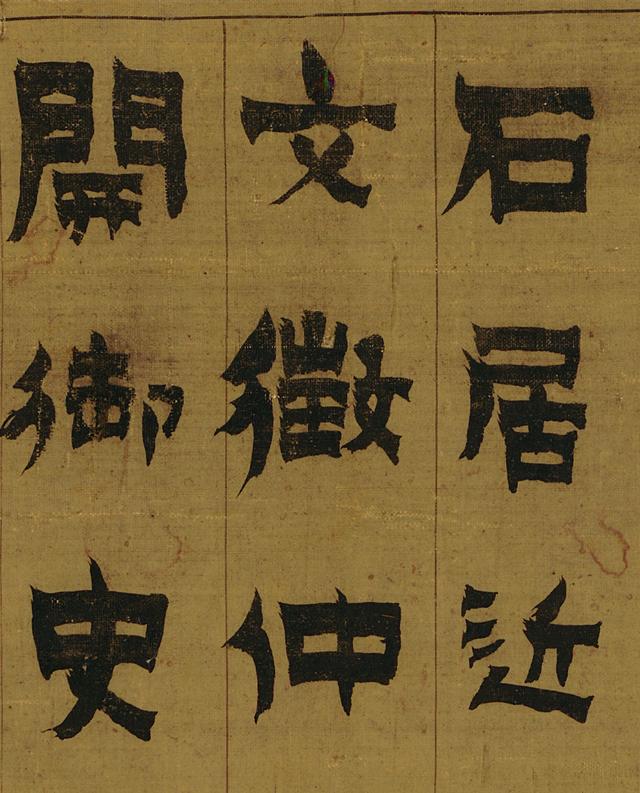 石居近
文徵仲
開御史